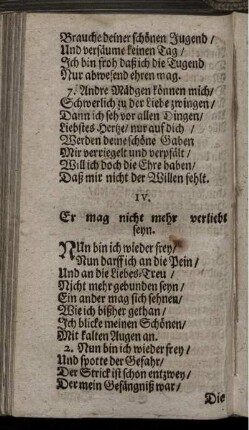 Brauche deiner schönen Jugend/
Und versäume keinen Tag/
Ich bin froh daß ich die Tugend
Nur abwesend ehren mag.
7. Andre Mädgen können mich/
Schwerlich zu der Liebe zwingen/
Dann ich seh vor allen Dingen/
Liebstes Hertze/ nur auf dich/
Werden deine schöne Gaben
Mir verriegelt und verpfält/
Will ich doch die Ehre haben/
Daß mir nicht der Willen fehlt.
IV.
Er mag nicht mehr verliebt
seyn.
NUn bin ich wieder frey/
Nun darff ich an die Pein/
Und an die Liebes-Treu/
Nicht mehr gebunden seyn/
Ein ander mag sich sehnen/
Wie ich bißher gethan/
Ich blicke meinen Schönen/
Mit kalten Augen an.
2. Nun bin ich wieder frey/
Und spotte der Gefahr/
Der Strick ist schon entzwey/
Der mein Gefängniß war/
Die